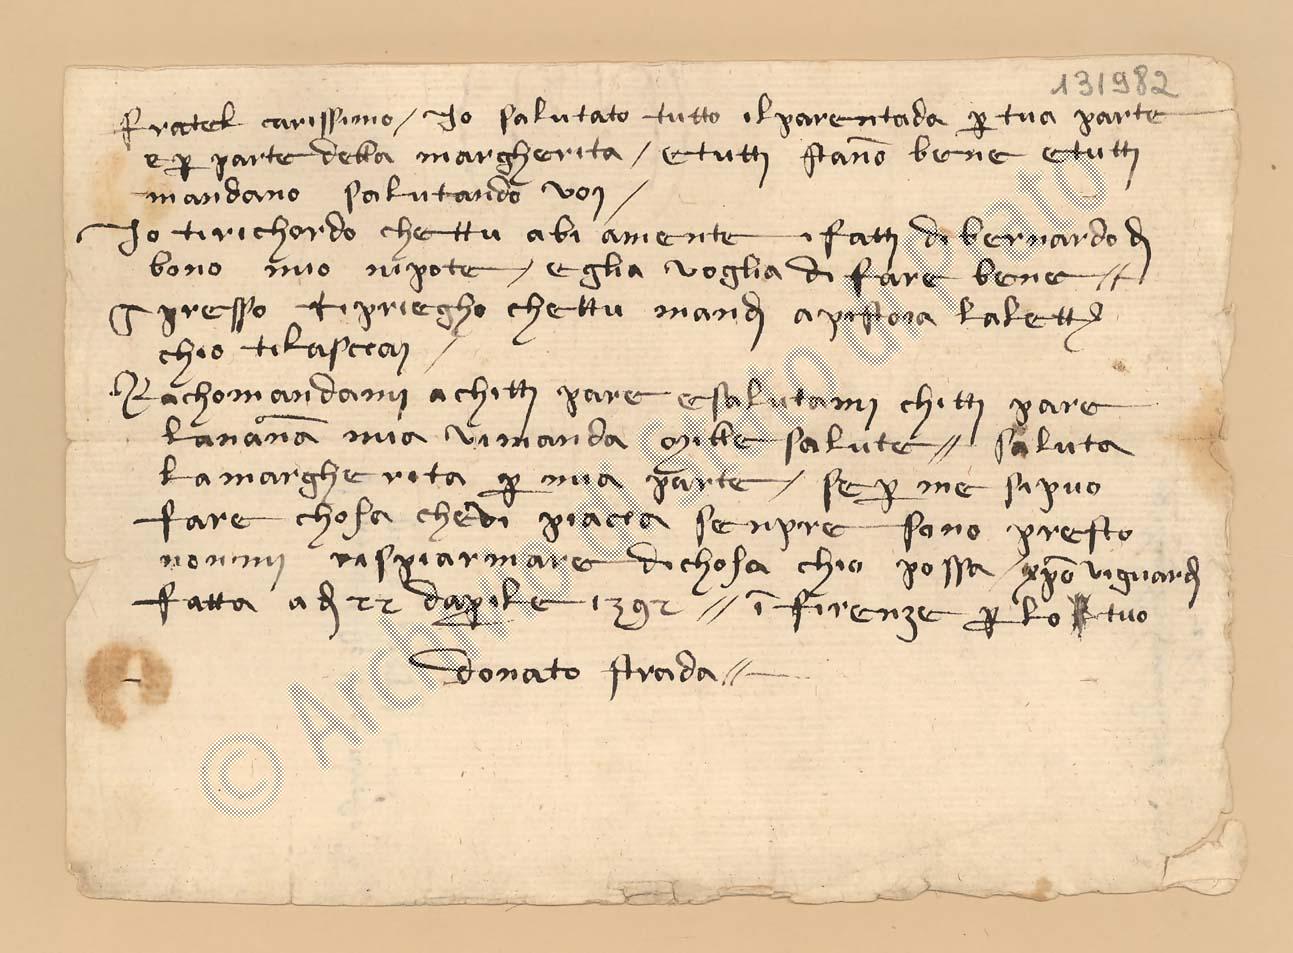 131982
fratel carissimo / Io salutato tutto il parentado ꝑ tua parte
e ꝑ parte della margherita / etutti stāno bene etutti
mandano salutando voi /
Io tirichordo chettu abi amente ifatti di bernardo di
bono mio nipote / eglia voglia di fare bene //
presso tipriegho chettu mandi apistoia lalettera
chio tilasciai /
Rachomandami achitti pare esalutami chitti pare
lanāna mia vimanda mille salute // saluta
lamargherita ꝑ mia parte / se ꝑ me sipuo
fare chosa chevi piaccia senpre sono presto
nonmi rispiarmare dichosa chio possa / xpō viguardi
fatta adi 22 daprile 1392 // ī firenze ꝑ lo tuo
donato strada //
© Archivio di Stato di Prato